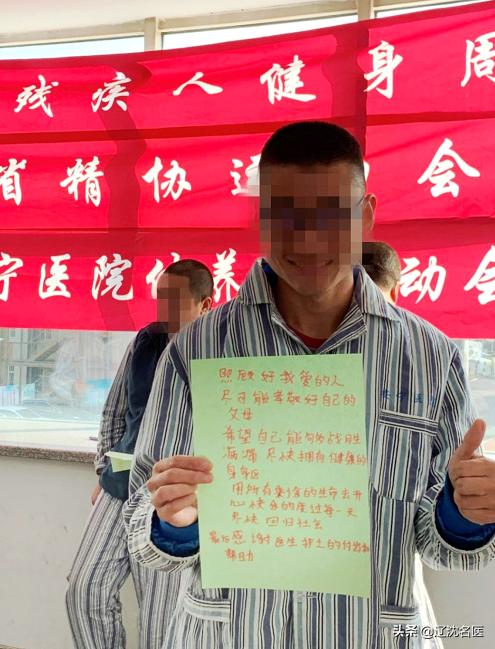 残疾人健身周
省精协运 会
宁医院 养 动会
照顾好我爱的人
尽可能孝敬好自己的
父母
希望自己能够战胜
病魔 尽快拥有健康的
用所有剩余的生命去开
心快乐的度过每一天
尽快回归社会
最后感谢医生护士的付出和
帮助
头条 @辽沈名医